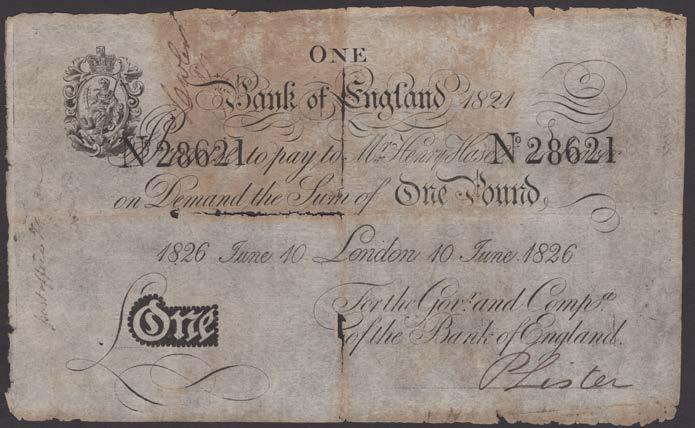 ONE
Bank of England 1821
Nº 28621 to pay to Mr. Henry Hase Nº 28621
on Demand the Sum of One Pound
1826 June 10 London 10 June 1826
For the Govr. and Compa. of the Bank of England.
£One
P Lister